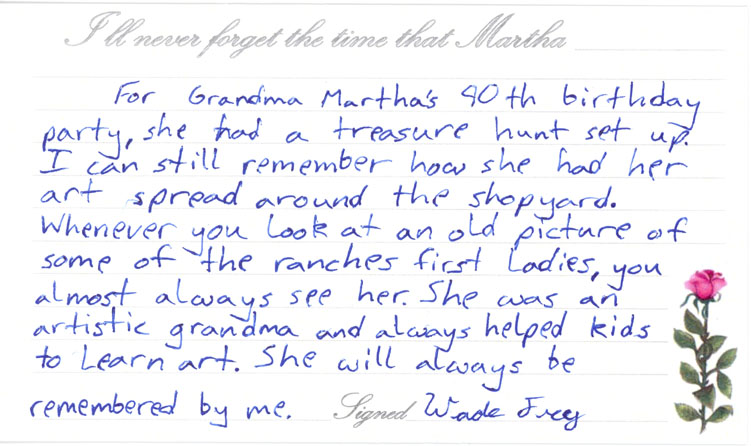 I'll never forget the time that Martha
For Grandma Martha's 90th birthday
party, she had a treasure hunt set up.
I can still remember how she had her
art spread around the shopyard.
Whenever you look at an old picture of
some of the ranches first Ladies, you
almost always see her. She was an
artistic grandma and always helped kids
to Learn art. She will always be
remembered by me. Signed Wade Frey